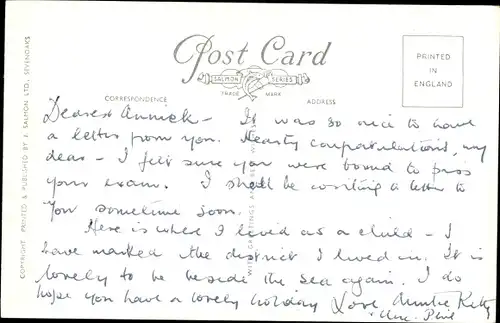 Post Card
SALMON SERIES
TRADE MARK
CORRESPONDENCE
ADDRESS
PRINTED
IN
ENGLAND
COPYRIGHT PRINTED & PUBLISHED BY J. SALMON LTD, SEVENOAKS
Dearest Annick - It was so nice to have
a letter from you. Hearty congratulations, my
dear - I felt sure you were bound to pass
your exam. I shall be writing a letter to
you sometime soon.
Here is where I lived as a child - I
have marked the district I lived in. It is
lovely to be beside the sea again. I do
hope you have a lovely holiday Love Auntie Kitty
& Unc. Phil